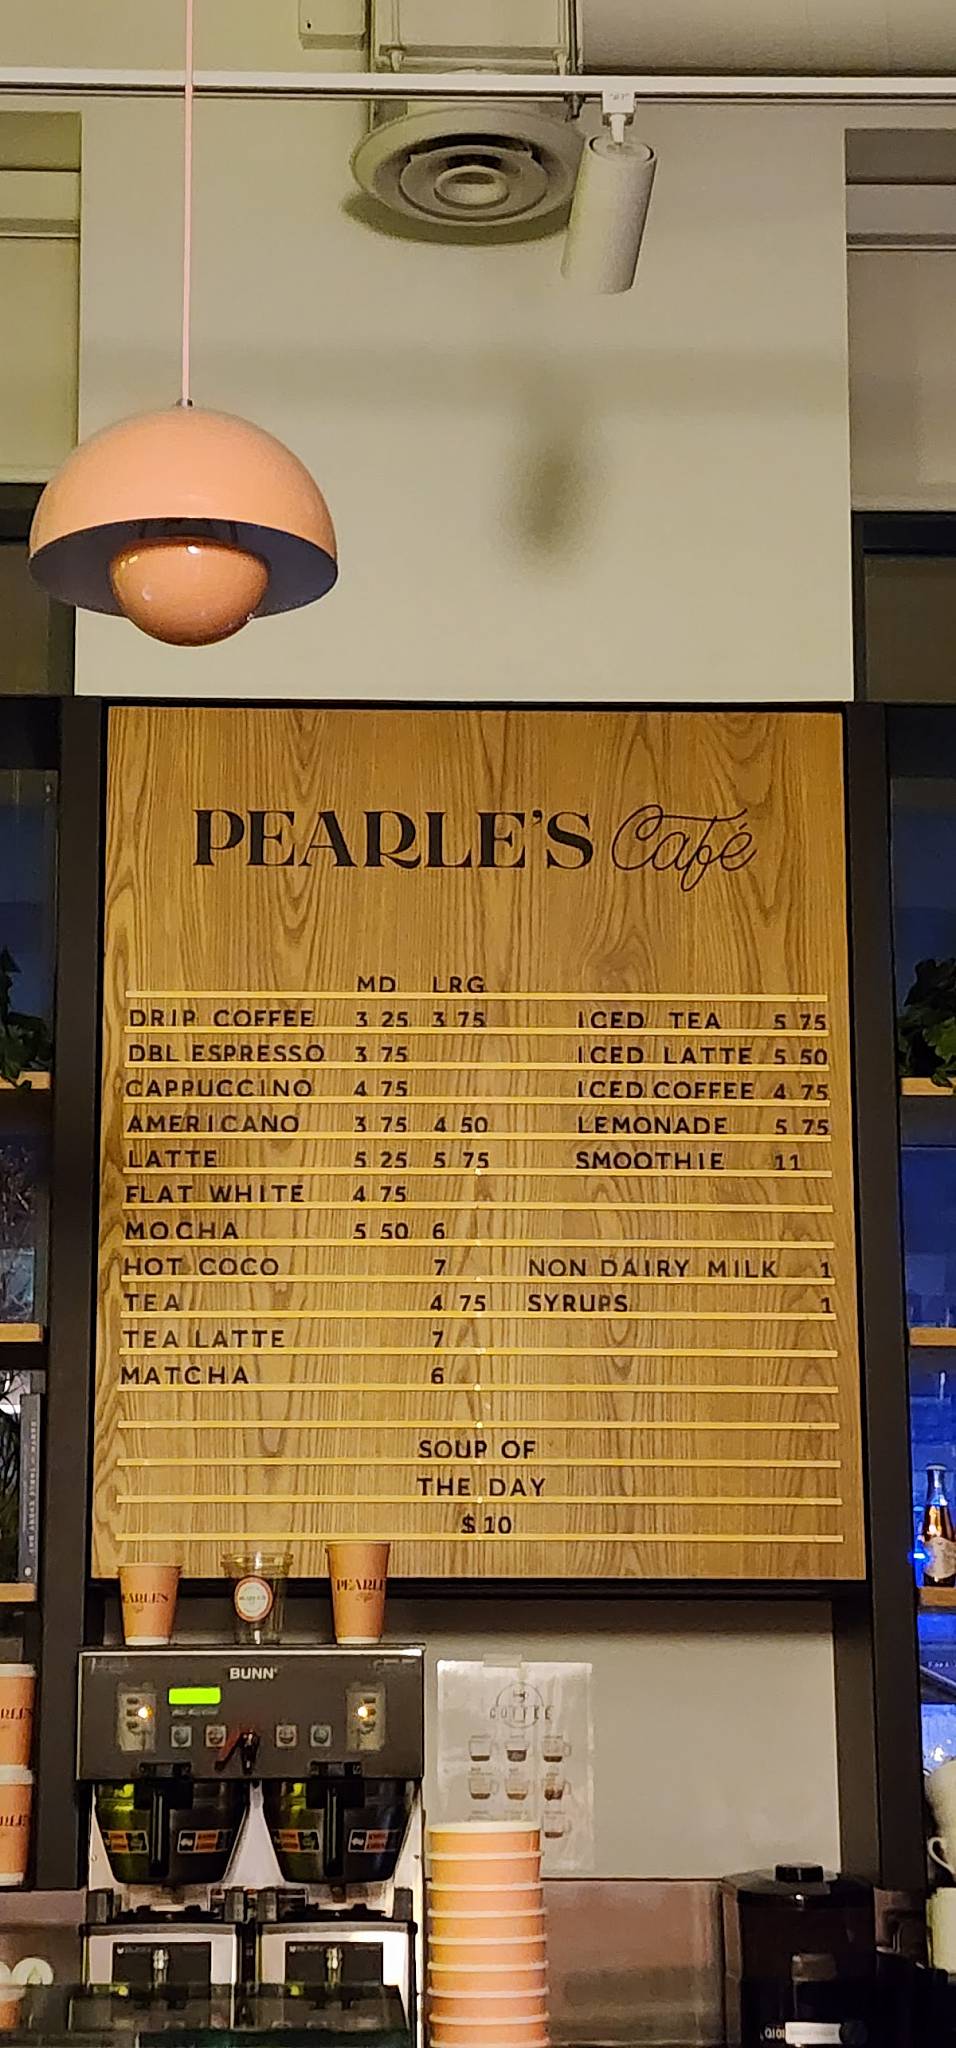 PEARLE'S Café
MD LRG
DRIP COFFEE 3 25 3 75 ICED TEA 5 75
DBL ESPRESSO 3 75 ICED LATTE 5 50
CAPPUCCINO 4 75 ICED COFFEE 4 75
AMERICANO 3 75 4 50 LEMONADE 5 75
LATTE 5 25 5 75 SMOOTHIE 11
FLAT WHITE 4 75
MOCHA 5 50 6
HOT COCO 7 NON DAIRY MILK 1
TEA 4 75 SYRUPS 1
TEA LATTE 7
MATCHA 6
SOUP OF
THE DAY
$ 10
EARLE'S
PEARLE
BUNN
COFFEE